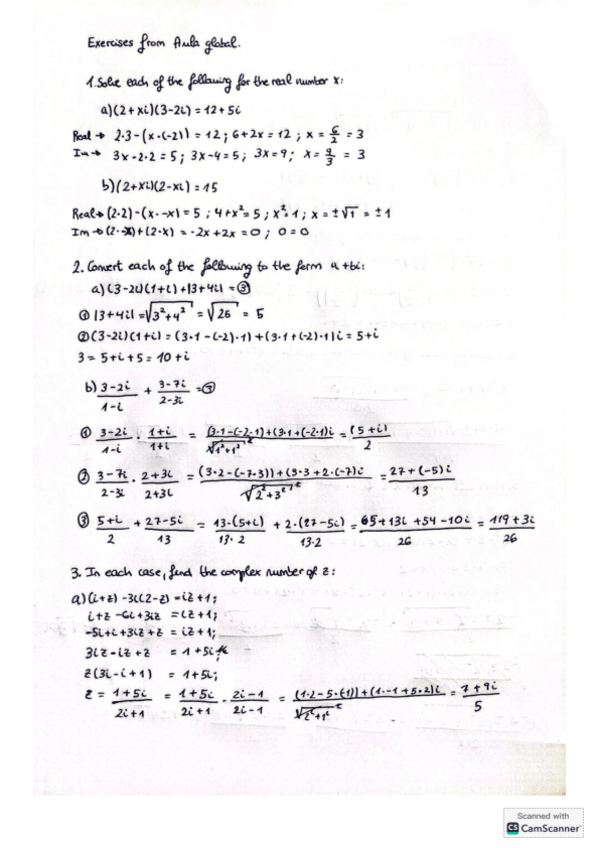 Exercises from Aula global.
1. Solve each of the following for the real number x:
a) (2 + xi)(3-2i) = 12+5i
Real → 2·3-(x·(-2)) = 12 ; 6+2x = 12 ; x = 6/2 = 3
Im → 3x-2·2 = 5 ; 3x-4 = 5 ; 3x = 9 ; x = 9/3 = 3
b) (2+xi)(2-xi) = 15
Real → (2·2)-(x·-x) = 5 ; 4+x² = 5 ; x² = 1 ; x = ±√1 = ±1
Im → (2·-x)+(2·x) = -2x+2x = 0 ; 0 = 0
2. Convert each of the following to the form a + bi:
a) (3-2i)(1+i) + |3+4i| = ③
① |3+4i| = √3²+4² = √25 = 5
② (3-2i)(1+i) = (3·1-(-2)·1)+(3·1+(-2)·1)i = 5+i
3 = 5+i+5 = 10+i
b) 3-2i/1-i + 3-7i/2-3i = ③
① 3-2i/1-i · 1+i/1+i = (3·1-(-2·1)+(3·1+(-2·1)i/√1²+1²² = (5+i)/2
② 3-7i/2-3i · 2+3i/2+3i = (3·2-(-7·3))+(3·3+2·(-7)i/√2²+3²² = 27+(-5)i/13
③ 5+i/2 + 27-5i/13 = 13·(5+i)/13·2 + 2·(27-5i)/13·2 = 65+13i+54-10i/26 = 119+3i/26
3. In each case, find the complex number of z:
a) (i+z) -3i(2-z) = iz+1;
i+z -6i+3iz = iz+1;
-5i+i+3iz+z = iz+1;
3iz-iz+z = 1+5i;
z(3i-i+1) = 1+5i;
z = 1+5i/2i+1 = 1+5i/2i+1 · 2i-1/2i-1 = (1·2-5·(-1))+(1·-1+5·2)i/√2²+1² = 7+9i/5
Scanned with
CS CamScanner